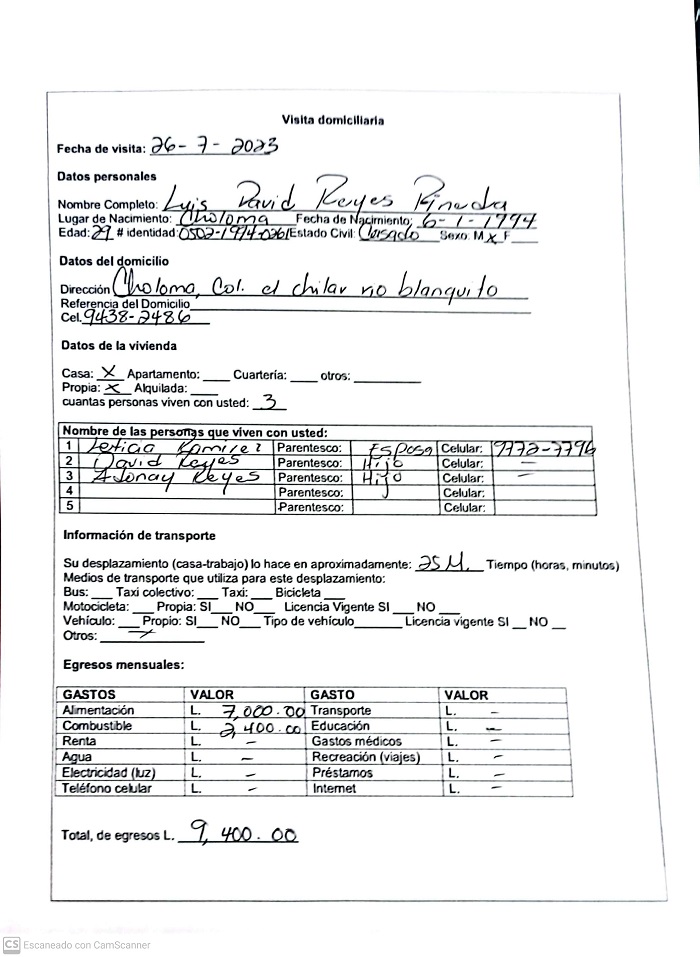 Visita domiciliaria
Fecha de visita: 26-7-2023
Datos personales
Nombre Completo: Luis David Reyes Pineda
Lugar de Nacimiento: Choloma Fecha de Nacimiento: 6-1-1994
Edad: 29 # identidad: 0502-1994-0261 Estado Civil: Casado Sexo: M X F___
Datos del domicilio
Dirección Choloma, Col. el chilar rio blanquito
Referencia del Domicilio
Cel. 9438-2486
Datos de la vivienda
Casa: X Apartamento: ____ Cuartería: ____ otros: ____
Propia: X Alquilada: ____
cuantas personas viven con usted: 3
Nombre de las personas que viven con usted:
1 Leticia Ramirez Parentesco: Esposa Celular: 9772-7796
2 David Reyes Parentesco: Hijo Celular: –
3 Adonay Reyes Parentesco: Hijo Celular: –
4 Parentesco: Celular:
5 Parentesco: Celular:
Información de transporte
Su desplazamiento (casa-trabajo) lo hace en aproximadamente: 25 M. Tiempo (horas, minutos)
Medios de transporte que utiliza para este desplazamiento:
Bus: ___ Taxi colectivo: ___ Taxi: ___ Bicicleta ___
Motocicleta: ___ Propia: SI___ NO___ Licencia Vigente SI ___ NO ___
Vehículo: ___ Propio: SI___ NO___ Tipo de vehículo_______ Licencia vigente SI __ NO __
Otros:
Egresos mensuales:
GASTOS VALOR GASTO VALOR
Alimentación L. 7,000.00 Transporte L. –
Combustible L. 2,400.00 Educación L. –
Renta L. – Gastos médicos L. –
Agua L. – Recreación (viajes) L. –
Electricidad (luz) L. – Préstamos L. –
Teléfono celular L. – Internet L. –
Total, de egresos L. 9,400.00
CS Escaneado con CamScanner